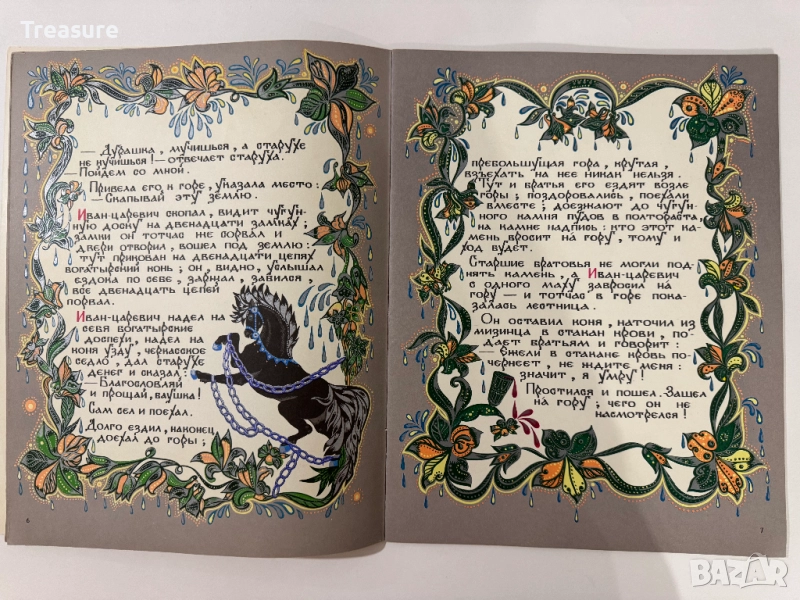 Treasure
— Дурашка, мучишься, а старухе
не кучишься! — отвечает старуха.
— Пойдем со мной.
Привела его к горе, указала место:
— Скапывай эту землю.
Иван-царевич скопал, видит чугун-
ную доску на двенадцати замках;
замки он тотчас же порвал и
двери отворил, вошел под землю:
тут прикован на двенадцати цепях
богатырский конь; он, видно, услышал
ездока по себе, заржал, завился,
все двенадцать цепей
порвал.
Иван-царевич надел на
себя богатырские
доспехи, надел на
коня узду, черкасское
седло, дал старухе
денег и сказал:
— Благословляй
и прощай, бабушка!
Сам сел и поехал.
Долго ездил, наконец
доехал до горы;
6
пребольшущая гора, крутая,
взъехать на нее никак нельзя.
Тут и братья его ездят возле
горы; поздоровались, поехали
вместе; доезжают до чугун-
ного камня пудов в полтораста,
на камне надпись: кто этот ка-
мень бросит на гору, тому и
ход будет.
Старшие братовья не могли под-
нять камень, а Иван-царевич
с одного маху забросил на
гору — и тотчас в горе пока-
залась лестница.
Он оставил коня, наточил из
мизинца в стакан крови, по-
дает братьям и говорит:
— Ежели в стакане кровь по-
чернеет, не ждите меня:
значит, я умру!
Простился и пошел. Зашел
на гору; чего он не
насмотрелся!
7
BAZAR